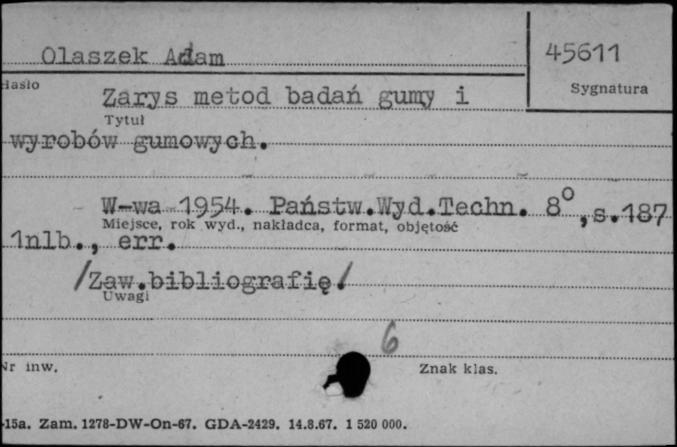 Olaszek Adam
45611
Hasło
Sygnatura
Zarys metod badań gumy i
Tytuł
wyrobów gumowych.
W-wa 1954. Państw.Wyd.Techn. 8º, s.187
Miejsce, rok wyd., nakładca, format, objętość
1nlb., err.
/Zaw.bibliografię/
Uwagi
6
Nr inw.
Znak klas.
-15a. Zam. 1278-DW-On-67. GDA-2429. 14.8.67. 1 520 000.